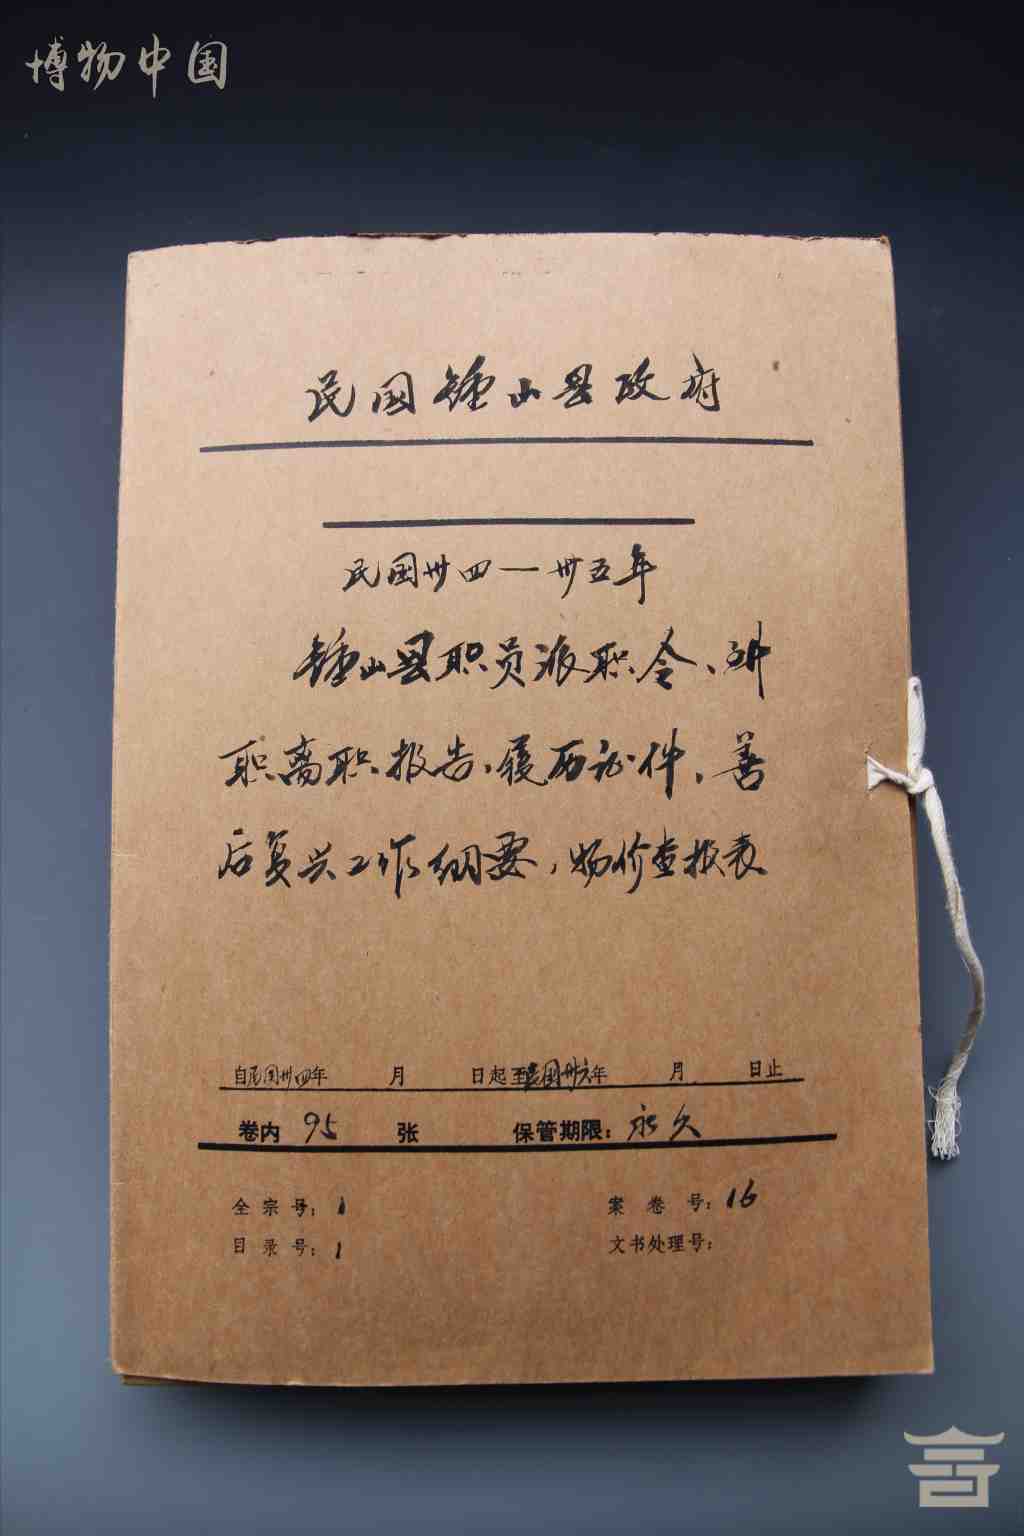 博物中国
民国鍾山县政府
民国卅四—卅五年
鍾山县职员派职令、到
职离职报告、履历证件、善
后复兴工作纲要,物价查报表
自民国卅四年 月 日起至民国卅六年 月 日止
卷内 95 张 保管期限:永久
全宗号:1 案卷号:16
目录号:1 文书处理号: